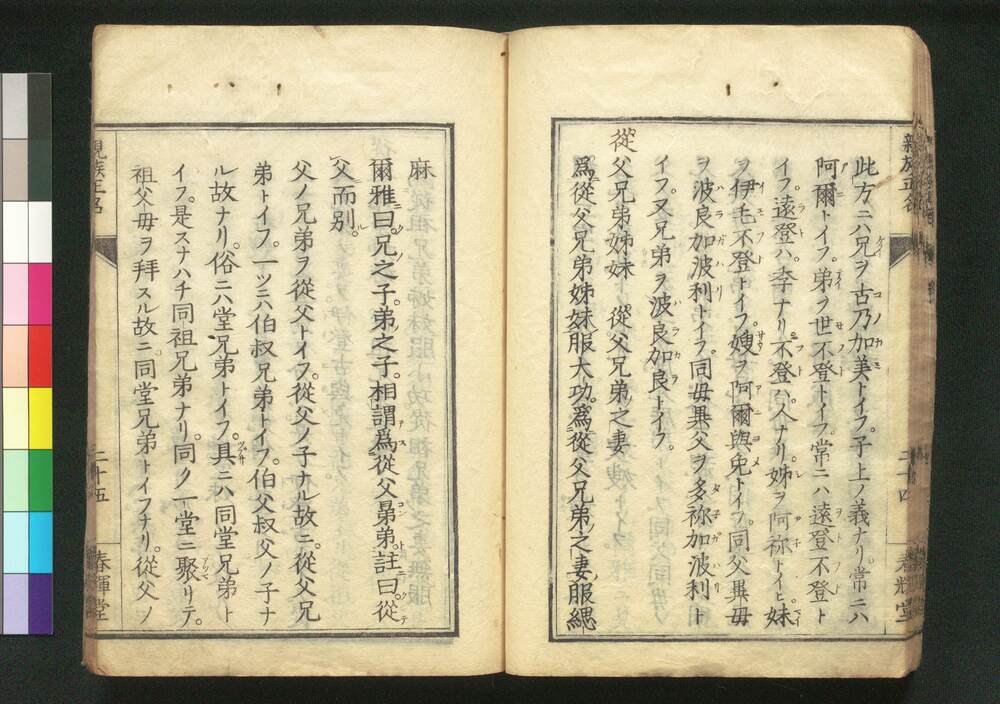 此方ニハ兄ヲ古乃加美トイフ。子上ノ義ナリ。常ニハ
阿爾トイフ。弟ヲ世不登トイフ。常ニハ遠登不登ト
イフ。遠登ハ。李ナリ。不登ハ。人ナリ。姉ヲ阿祢トイヒ。妹
ヲ伊毛不登トイフ。嫂ヲ阿爾與免トイフ。同父異母
ヲ波良加波利トイフ。同母異父ヲ多祢加波利ト
イフ。又兄弟ヲ波良加良トイフ。
從父兄弟姊妹 從父兄弟ノ之妻
爲從父兄弟姊妹服大功。爲從父兄弟ノ之妻服緦
親族正名
二十四
春輝堂
麻
爾雅曰。兄之子。弟之子。相謂爲從父晜弟。註曰。從
父而別。
父ノ兄弟ヲ從父トイフ。從父ノ子ナル故ニ。從父兄
弟トイフ。一ツニハ伯叔兄弟トイフ。伯父叔父ノ子ナ
ル故ナリ。俗ニハ堂兄弟トイフ。具ニハ同堂兄弟ト
イフ。是スナハチ同祖兄弟ナリ。同ク一堂ニ聚リテ。
祖父母ヲ拜スル故ニ。同堂兄弟トイフナリ。從父ノ
親族正名
二十五
春輝堂